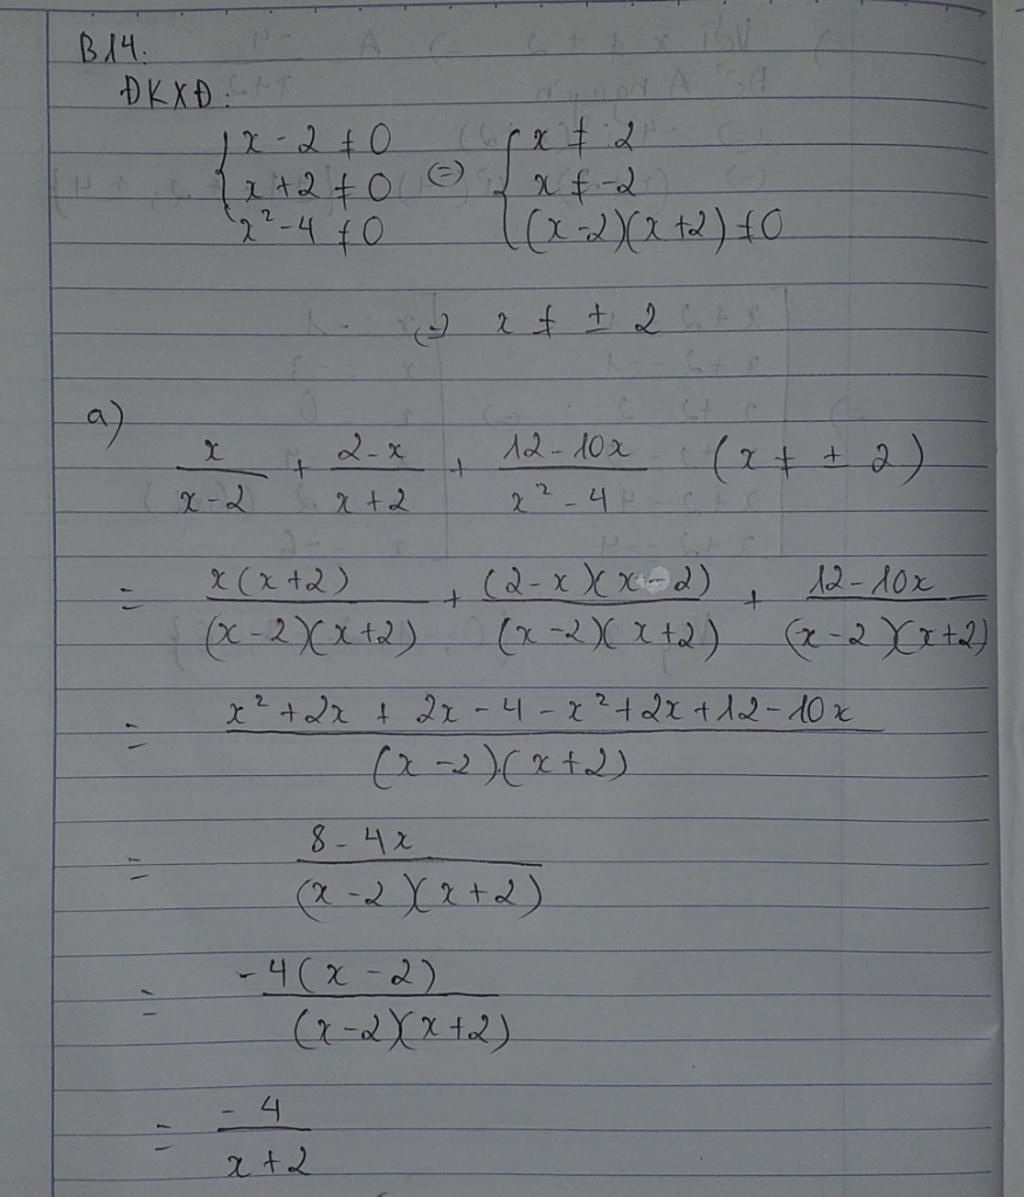 B14:
ĐKXĐ:
{ x - 2 ≠ 0
{ x + 2 ≠ 0
{ x² - 4 ≠ 0
(=)
{ x ≠ 2
{ x ≠ -2
{ (x - 2)(x + 2) ≠ 0
(=) x ≠ ± 2
a)
x/(x - 2) + (2 - x)/(x + 2) + (12 - 10x)/(x² - 4) (x ≠ ± 2)
= x(x + 2)/((x - 2)(x + 2)) + (2 - x)(x - 2)/((x - 2)(x + 2)) + (12 - 10x)/((x - 2)(x + 2))
= (x² + 2x + 2x - 4 - x² + 2x + 12 - 10x)/((x - 2).(x + 2))
= (8 - 4x)/((x - 2)(x + 2))
= -4(x - 2)/((x - 2)(x + 2))
= -4/(x + 2)